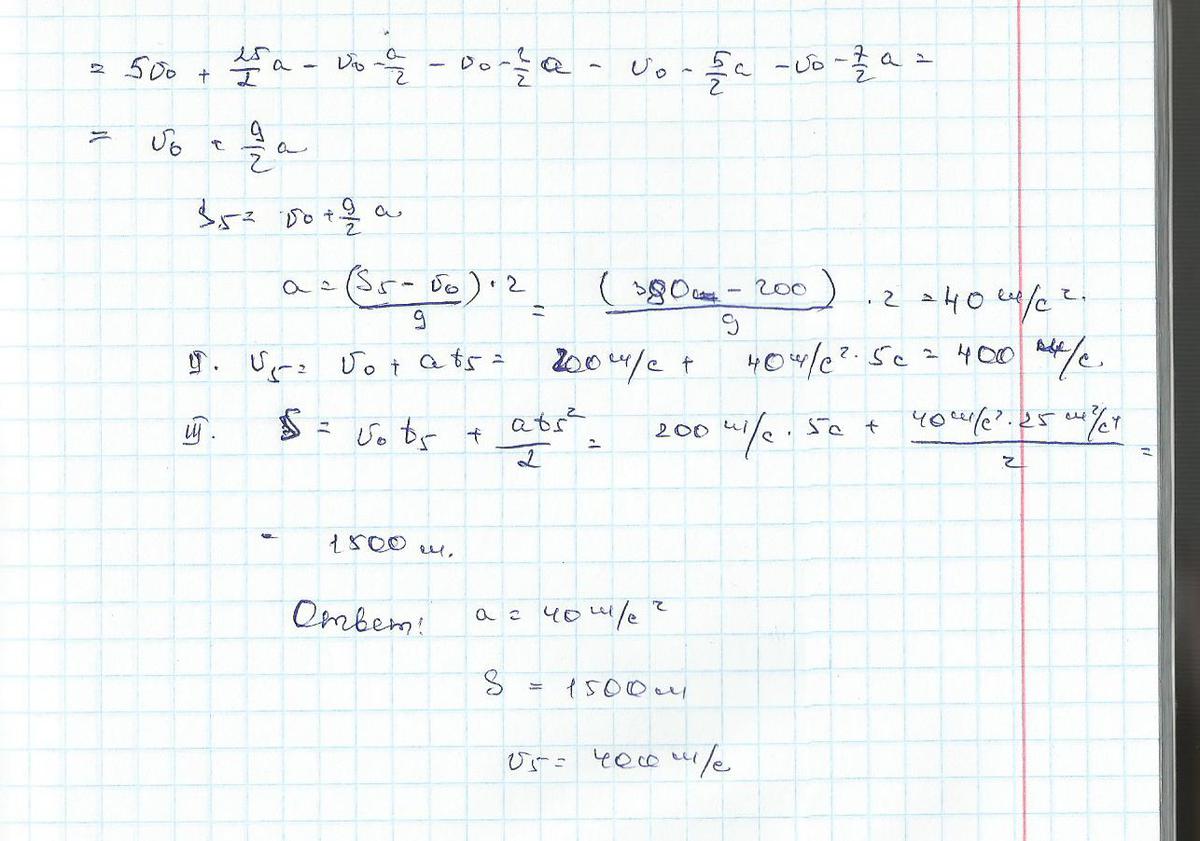 = 5v₀ + 25/2 a - v₀ - a/2 - v₀ - 2/2 a - v₀ - 5/2 a - v₀ - 7/2 a =
= v₀ + 9/2 a
S₅ = v₀ + 9/2 a
a = (S₅ - v₀) · 2 / 9 = (380 - 200) / 9 · 2 = 40 м/с².
II. v₅ = v₀ + at₅ = 200 м/с + 40 м/с² · 5с = 400 м/с.
III. S = v₀t₅ + at₅²/2 = 200 м/с · 5с + 40 м/с² · 25 м²/с⁴ / 2 =
= 1500 м.
Ответ: a = 40 м/с²
S = 1500 м
v₅ = 400 м/с